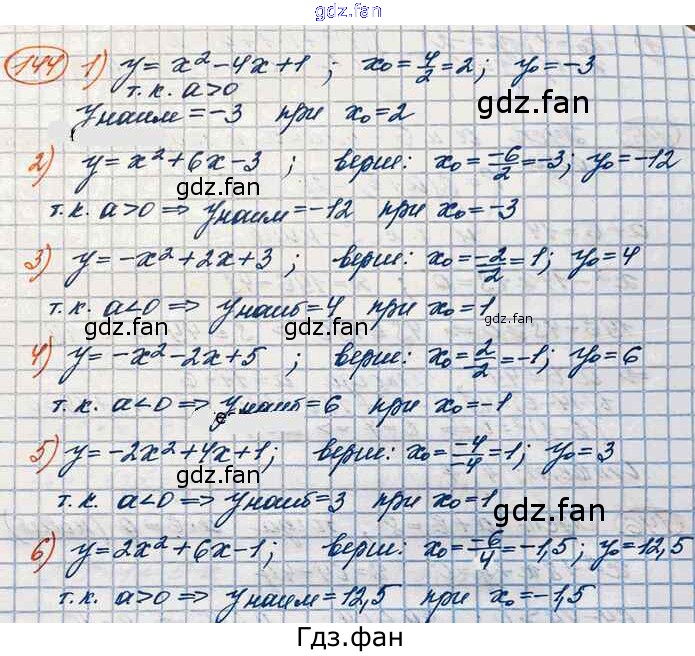 gdz.fan
144 1) y = x² - 4x + 1 ; x₀ = 4/2 = 2; y₀ = -3
т.к. a>0
y наим = -3 при x₀ = 2
gdz.fan
2) y = x² + 6x - 3 ; верш: x₀ = -6/2 = -3; y₀ = -12
gdz.fan
т.к. a>0 ⇒ y наим = -12 при x₀ = -3
gdz.fan
3) y = -x² + 2x + 3 ; верш: x₀ = -2/-2 = 1; y₀ = 4
т.к. a<0 ⇒ y наиб = 4 при x₀ = 1
gdz.fan gdz.fan gdz.fan
4) y = -x² - 2x + 5 ; верш: x₀ = 2/-2 = -1; y₀ = 6
gdz.fan
т.к. a<0 ⇒ y наиб = 6 при x₀ = -1
5) y = -2x² + 4x + 1; верш: x₀ = -4/-4 = 1; y₀ = 3
т.к. a<0 ⇒ y наиб = 3 при x₀ = 1
gdz.fan
6) y = 2x² + 6x - 1; верш: x₀ = -6/4 = -1,5; y₀ = 12,5
т.к. a>0 ⇒ y наим = 12,5 при x₀ = -1,5
gdz.fan gdz.fan
Гдз.фан